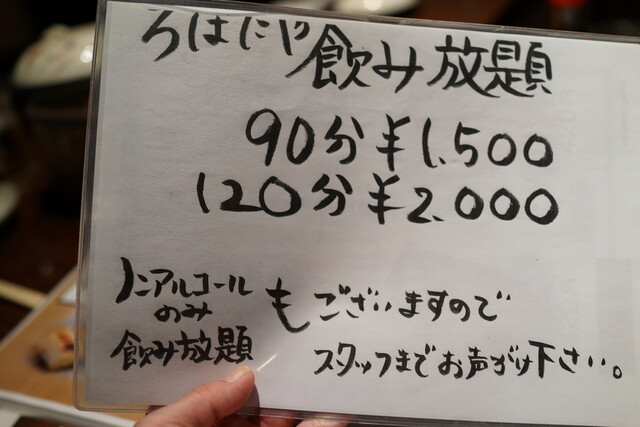 ろばたや飲み放題
90分¥1,500
120分¥2,000
ノンアルコール
のみ
飲み放題
もございますので
スタッフまでお声がけ下さい。